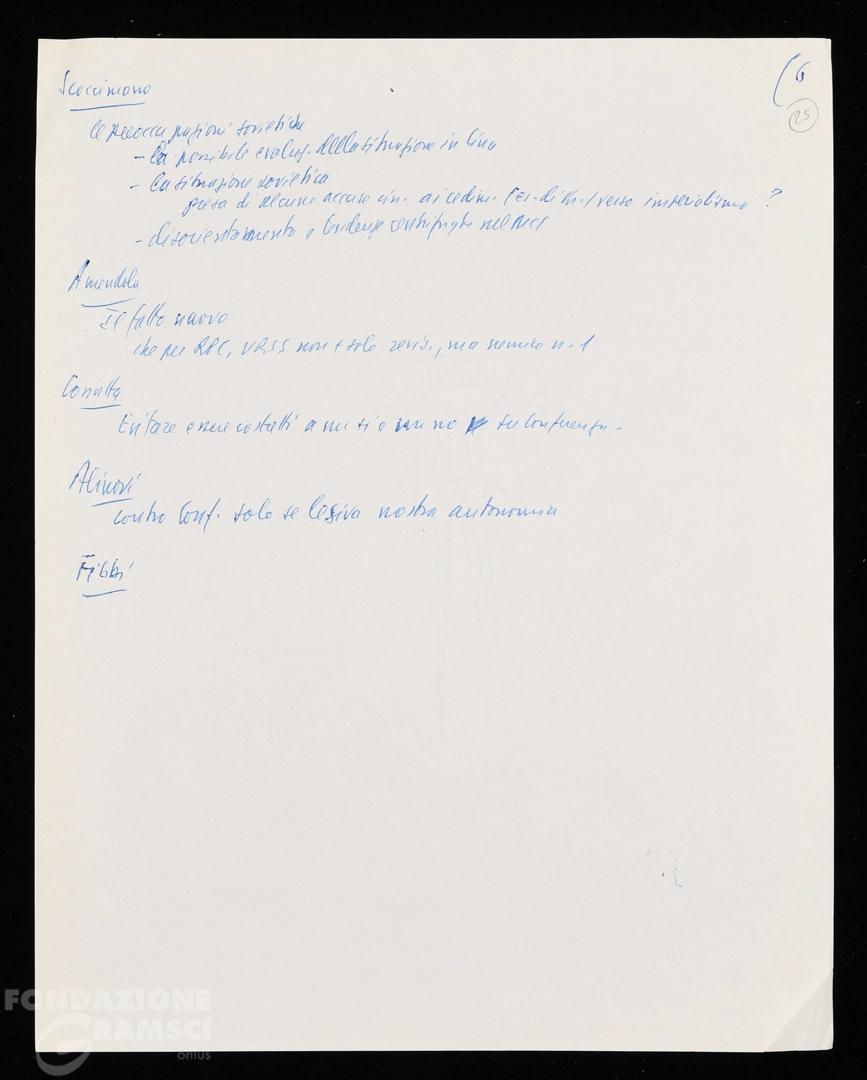 (6
25
Scoccimarro
le preoccupazioni sovietiche
- la possibile evoluz. della situazione in Cina
- la situazione sovietica
presa di alcune accuse cin. ai cedim. (es. di Kr.) verso imperialismo ?
- disorientamento e tendenze centrifughe nel MCI
Amendola
Il fatto nuovo
che per RPC, URSS non è solo revis., ma nemico n. 1
Cossutta
Evitare essere costretti a un sì o un no su Conferenza -
Alinovi
contro Conf. solo se lesiva nostra autonomia
Fibbi
FONDAZIONE
GRAMSCI
onlus